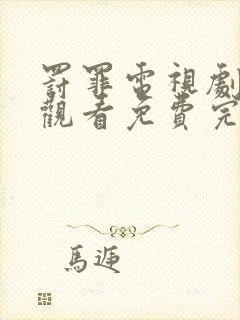 罸罪電視劇
觀看免費完
馬迊